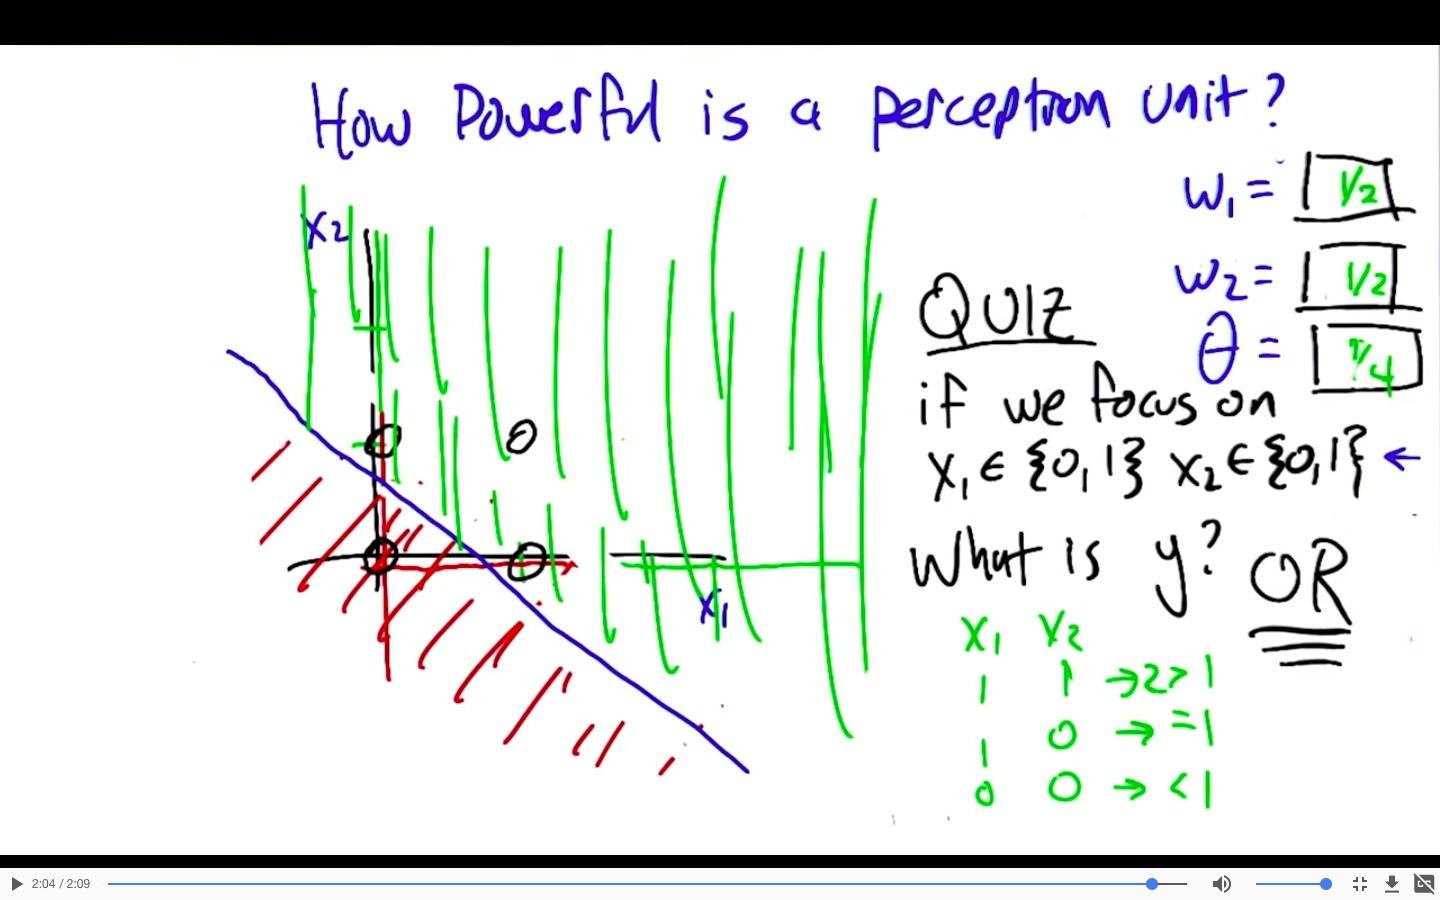 How Powerful is a perceptron unit?
w1 = 1/2
x2
w2 = 1/2
QUIZ
θ =
if we focus on
x1 ∈ {0,1} x2 ∈ {0,1} ←
What is y? OR
x1
x1 x2
1 1 → 2 > 1
1 0 → = 1
0 0 → < 1
2:04 / 2:09